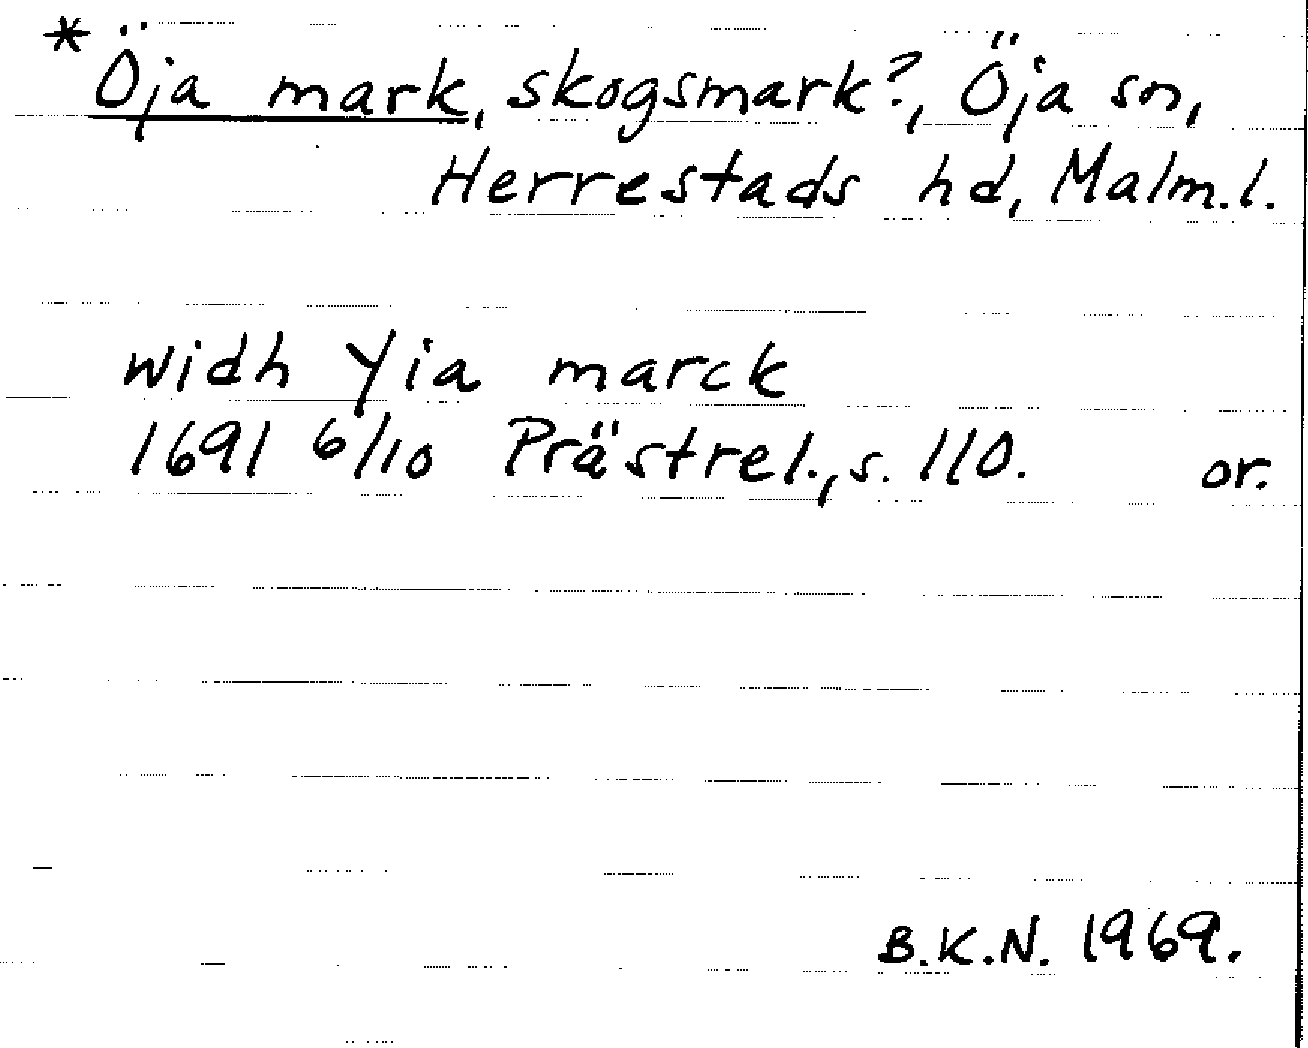 *Öja mark, skogsmark?, Öja sn,
Herrestads hd, Malm.l.
widh Yia marck
1691 6/10 Prästrel., s. 110. or.
B.K.N. 1969.